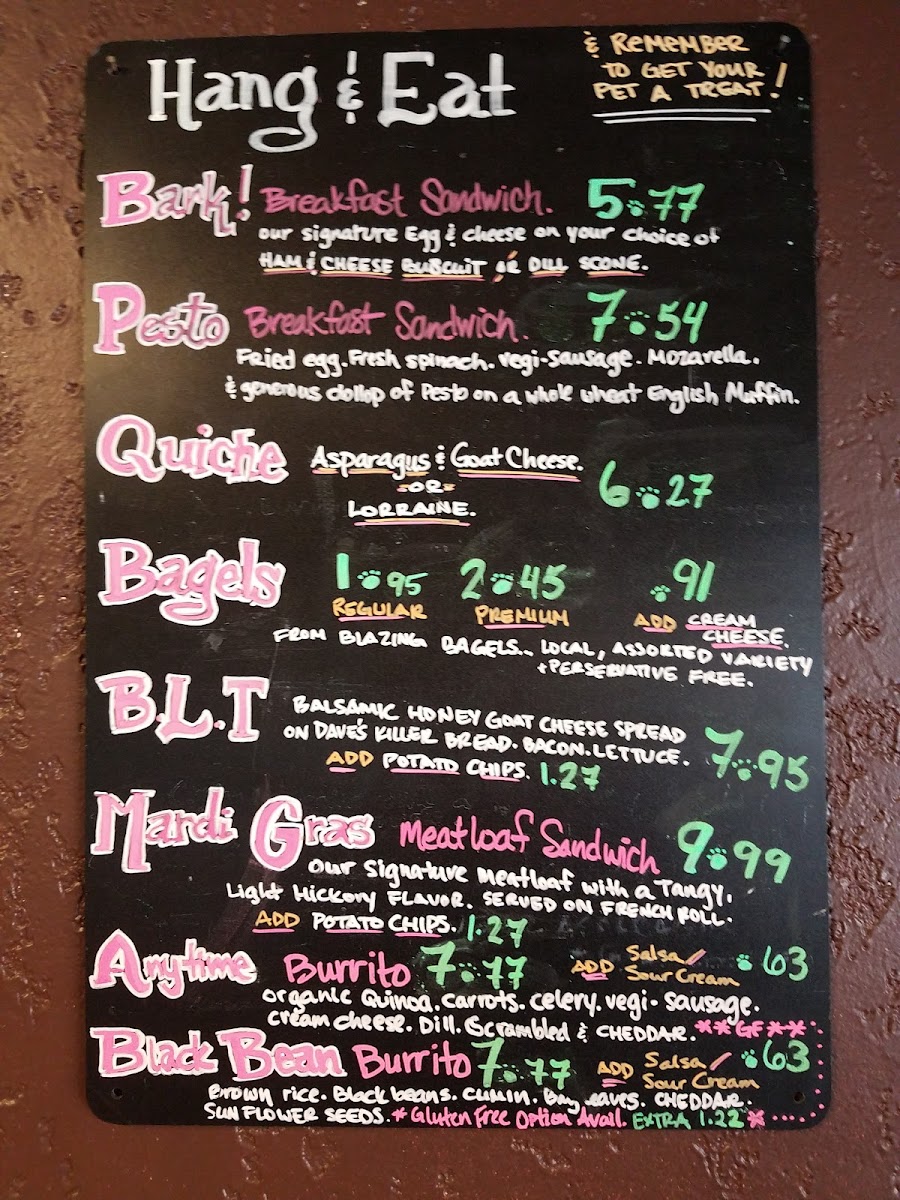 Hang & Eat
& REMEMBER
TO GET YOUR
PET A TREAT!
Bark! Breakfast Sandwich. 5.77
our signature Egg & cheese on your choice of
HAM & CHEESE BUSCUIT OR DILL SCONE.
Pesto Breakfast Sandwich. 7.54
Fried egg. Fresh spinach. vegi-sausage. Mozarella.
& generous dollop of Pesto on a whole wheat English Muffin.
Quiche Asparagus & Goat Cheese. 6.27
-OR-
LORRAINE.
Bagels 1.95 2.45 .91
REGULAR PREMIUM ADD CREAM
CHEESE.
FROM BLAZING BAGELS.. LOCAL, ASSORTED VARIETY
+PERSERVATIVE FREE.
B.L.T BALSAMIC HONEY GOAT CHEESE SPREAD
ON DAVE'S KILLER BREAD. BACON. LETTUCE. 7.95
ADD POTATO CHIPS. 1.27
Mardi Gras Meatloaf Sandwich 9.99
our signature Meatloaf with a Tangy,
Light Hickory FLAVOR. SERVED ON FRENCH ROLL.
ADD POTATO CHIPS. 1.27
Anytime Burrito 7.77 ADD Salsa/ .63
Sour Cream
organic Quinoa. carrots. celery. vegi-sausage.
cream cheese. Dill. Scrambled & CHEDDAR. **GF**
Black Bean Burrito 7.77 ADD Salsa/ .63
Sour Cream
Brown rice. Black beans. cumin. Bay leaves. CHEDDAR.
SUNFLOWER SEEDS. *Gluten Free Option Avail. EXTRA 1.22*